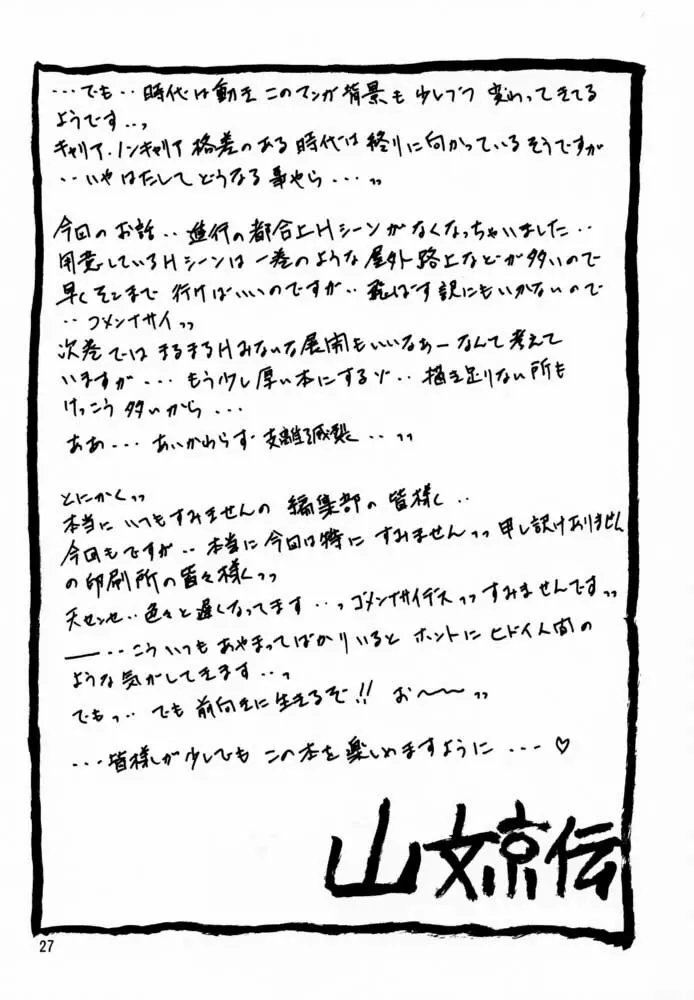 ・・・でも・・時代は動き このマンガ背景も少しづつ 変わってきてる
ようです・・っ
キャリア・ノンキャリア 格差のある時代は終りに向かっているそうですが
・・いや はたして どうなる事やら・・・っっ
今回のお話・・進行の都合上Hシーンがなくなっちゃいました・・
用意しているHシーンは 一巻のような屋外路上などが多いので
早くそこまで 行けばいいのですが・・飛ばす訳にもいかないので
・・ゴメンナサイっっ
次巻では まるまるHみたいな展開もいいなぁーなんて考えて
いますが・・・もう少し厚い本にするゾ・・描き足りない所も
けっこう多いから・・・
ああ・・・あいかわらず 支離滅裂・・っっ
とにかくっっ
本当に いつもすみませんの 編集部の皆様く・・
今回もですが・・本当に今回は特に すみませんっっ申し訳けありません
の印刷所の皆々様くっっ
天センセ・・色々と遅くなってます・・っゴメンナサイデスっっすみませんですっっ
――・・こう いつも あやまってばかりいると ホントにヒドイ人間の
ような気がしてきます・・っ
でもっ・・でも前向きに生きるぞ!! お〜〜っっ
・・・皆様が少しでも この本を楽しめますように・・・♡
山文京伝
27